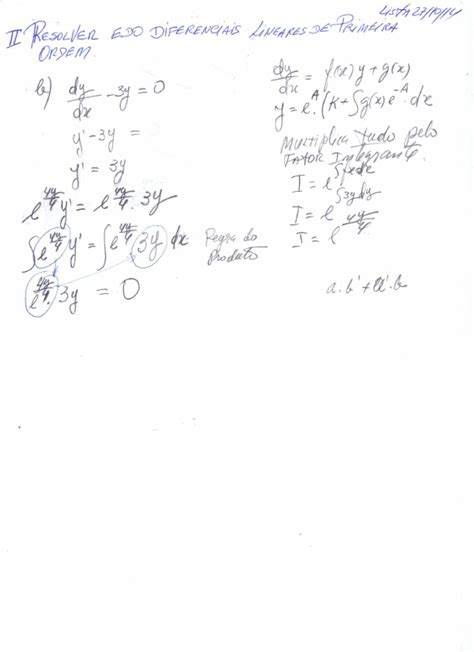 Lista 27/10/14
II RESOLVER EDO DIFERENCIAIS LINEARES DE PRIMEIRA
ORDEM.
b) dy/dx - 3y = 0
y' - 3y =
y' = 3y
y' = 3y
∫ y' = ∫ 3y dx Regra do
Produto
3y = 0
dy/dx = f(x)y + g(x)
y = e^A. (K + ∫g(x)e^-A dx
Multiplica tudo pelo
FATOR Integrante.
I = e
I = e^∫3ydy
I = e
a.b' + a'.b